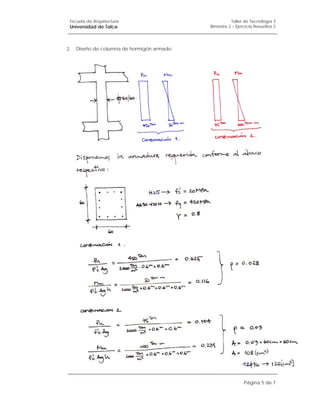 Escuela de Arquitectura
Universidad de Talca
Taller de Tecnología 3
Bimestre 2 – Ejercicio Resueltos 2
2. Diseño de columna de hormigón armado
Pu Mu
Pu Mu
60/60
450 Ton 50 Ton m
Combinación 1.
75 Ton 100 Ton m
Combinación 2.
Disponemos la armadura requerida conforme al ábaco
respectivo:
60
60
H25 → f'c = 20 MPa
A630-420H → fy = 420 MPa
γ = 0.8
Combinación 1.
Pu / f'c Ag = 450 Ton / 2000 Ton/m² · 0.6m · 0.6m = 0.625
Mu / f'c Ag h = 50 Ton m / 2000 Ton/m² · 0.6m · 0.6m · 0.6m = 0.116
ρ = 0.028
Combinación 2.
Pu / f'c Ag = 75 Ton / 2000 Ton/m² · 0.6m · 0.6m = 0.104
Mu / f'c Ag h = 100 Ton m / 2000 Ton/m² · 0.6m · 0.6m · 0.6m = 0.231
ρ = 0.03
A = 0.03 · 60cm · 60cm
A = 108 (cm²)
12φ36 → 122 (cm²)
Página 5 de 7